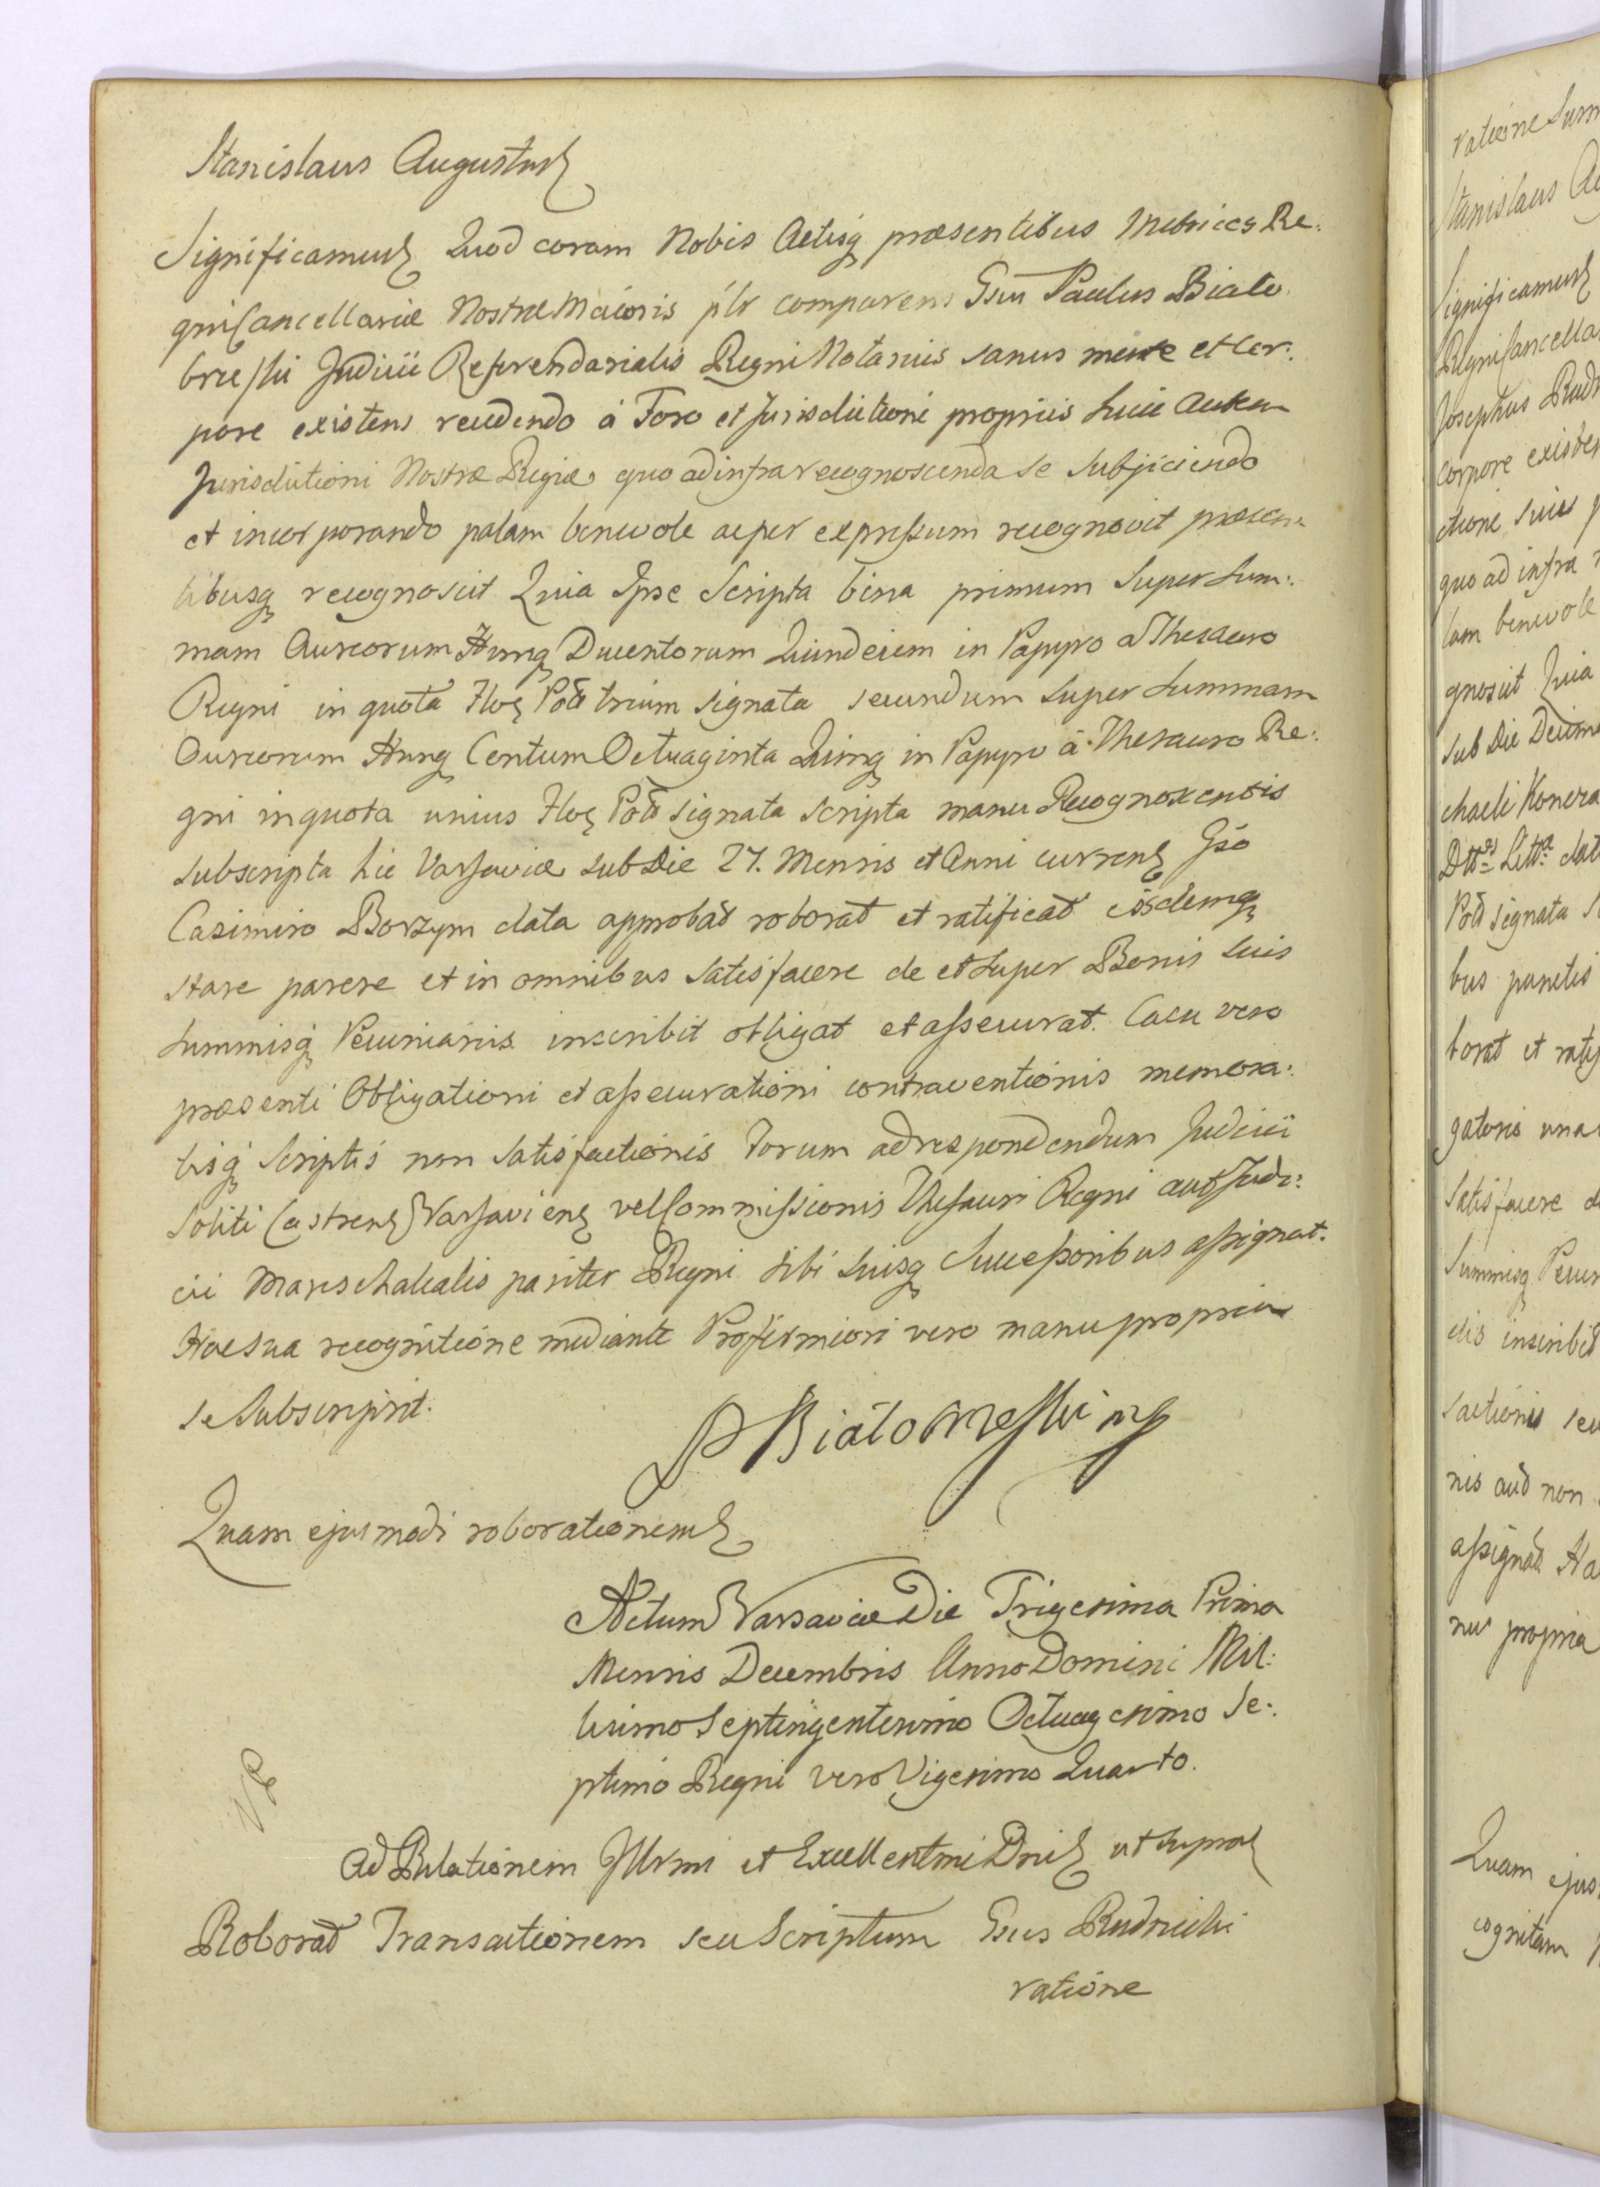 Stanislaus Augustus
Significamus Quod coram Nobis Actisq præsentibus Metrices Re:
gni Cancellariæ Nostræ Maioris plr comparens Gsus Paulus Biało
brzeski Judicii Referendarialis Regni Notarius sanus mente et Cor:
pore existens recedendo à Foro et Jurisdictioni propriis huic autem
Jurisdictioni Nostræ Regiæ quo ad infra recognoscenda se subjiciendo
et incorporando palam benevole ac per expressum recognovit præsen
tibusq recognoscit Quia Ipse Scripta bina primum super Sum:
mam Aureorum Hung Ducentorum Quindecim in Papyro à Thesauro
Regni in quota Flor Pol trium signata secundum super Summam
Aureorum Hung Centum Octuaginta Quinq in Papyro à Thesauro Re:
gni in quota unius Flor Pol signata scripta manu Recognoscentis
subscripta hic Varsaviæ sub Die 27. Mensis et Anni currens Gso
Casimiro Borzym data approbat roborat et ratificat iisdemq
stare parere et in omnibus satisfacere de et super Bonis suis
Summisq Pecuniariis inscribit obligat et assecurat. Casu vero
præsenti Obligationi et assecurationi contraventionis memora:
tisq Scriptis non satisfactionis Forum ad respondendum Judicii
Soliti Castrens Varsaviens vel Commissionis Thesauri Regni aut Judi:
cii Mareschalcalis pariter Regni sibi suisq Successoribus assignat.
Hac sua recognitione mediante Pro firmiori vero manu propria
se Subscripsit.
P Białobrzeski mp
Quam ejusmodi roborationem
Actum Varsaviæ Die Trigesima Prima
Mensis Decembris Anno Domini Mil:
lesimo Septingentesimo Octuagesimo Se:
ptimo Regni vero Vigesimo Quarto.
Ad Relationem Illrmi et Excellentmi Dni ut supra
Roborat Transactionem seu Scriptum Gsus Rudnicki
ratione
ratione Sum
Stanislaus Au
Significamus
Regni Cancella
Josephus Rudn
corpore existen
ctione suis p
quo ad infra r
lam benevole
gnoscit Quia
sub Die Decima
chaeli Konera
Pol signata s
bus punctis
borat et ratif
gatoris una
satisfacere d
Summisq Pecun
inscribit
sactionis seu
nis aut non
assignat Ha
nu propria
Quam ejus
cognitam